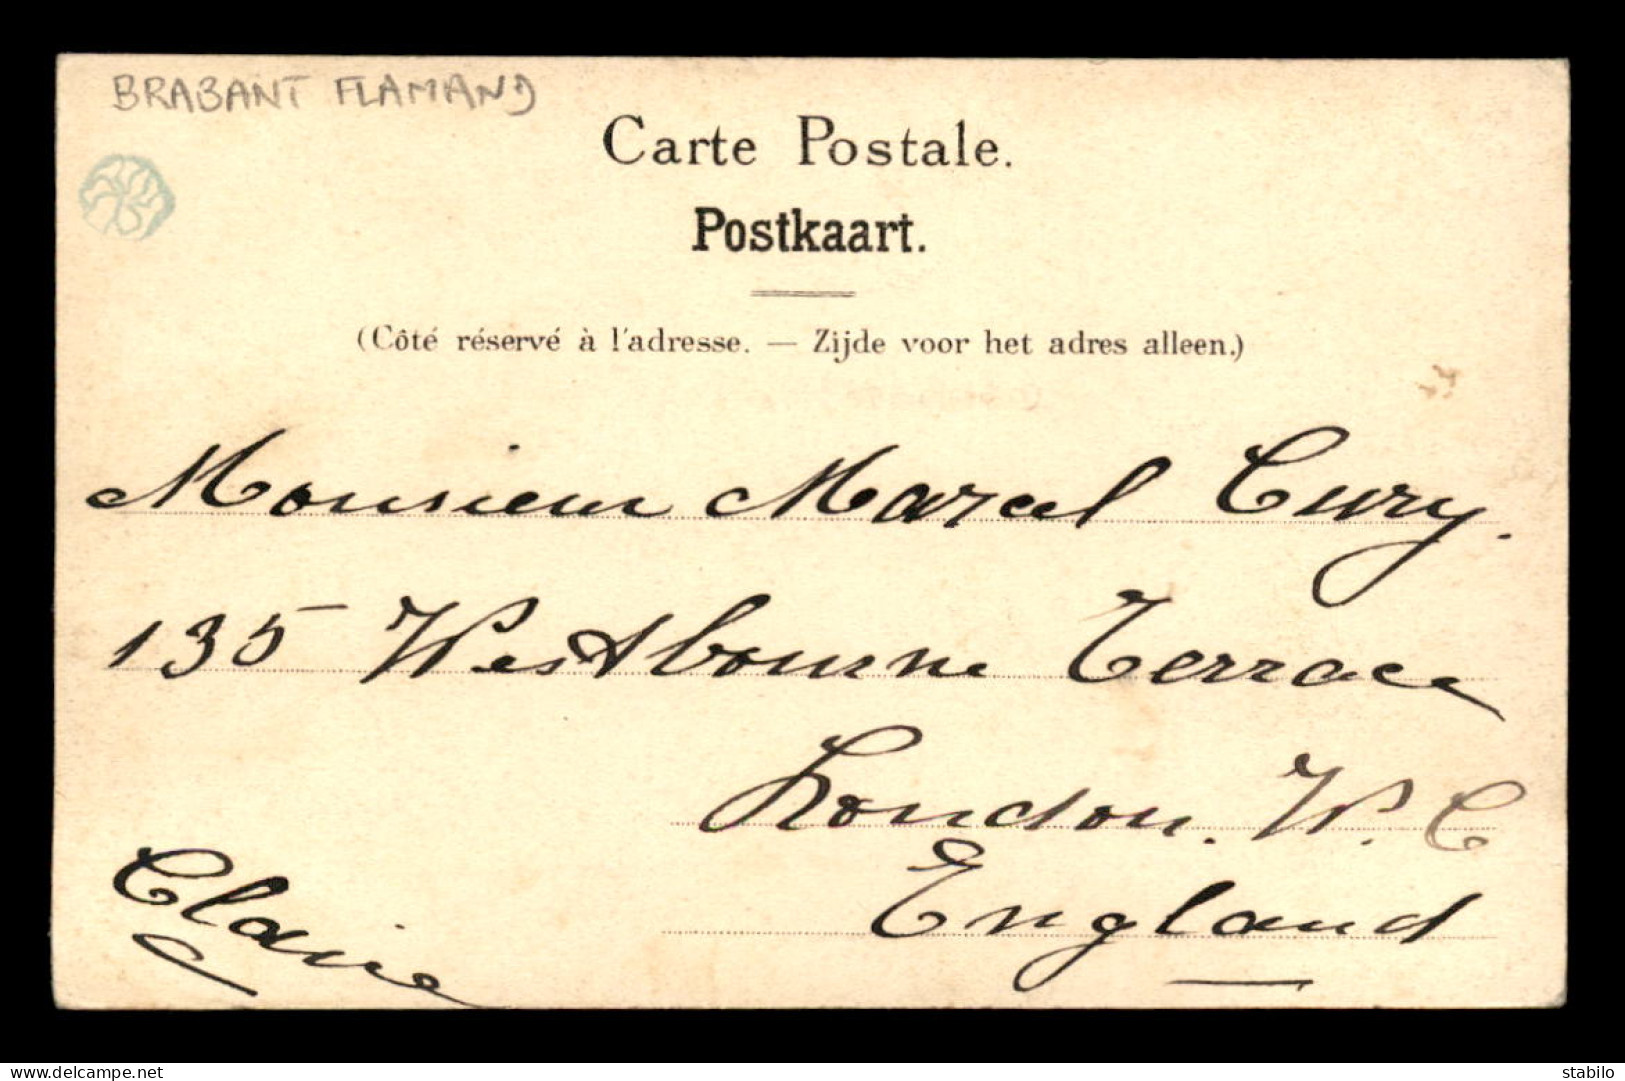 BRABANT FLAMAND
Carte Postale.
Postkaart.
(Côté réservé à l'adresse. — Zijde voor het adres alleen.)
Monsieur Marcel Cury.
135 Westbourne Terrace
London. W. C
England
Claire
www.delcampe.net
stabilo